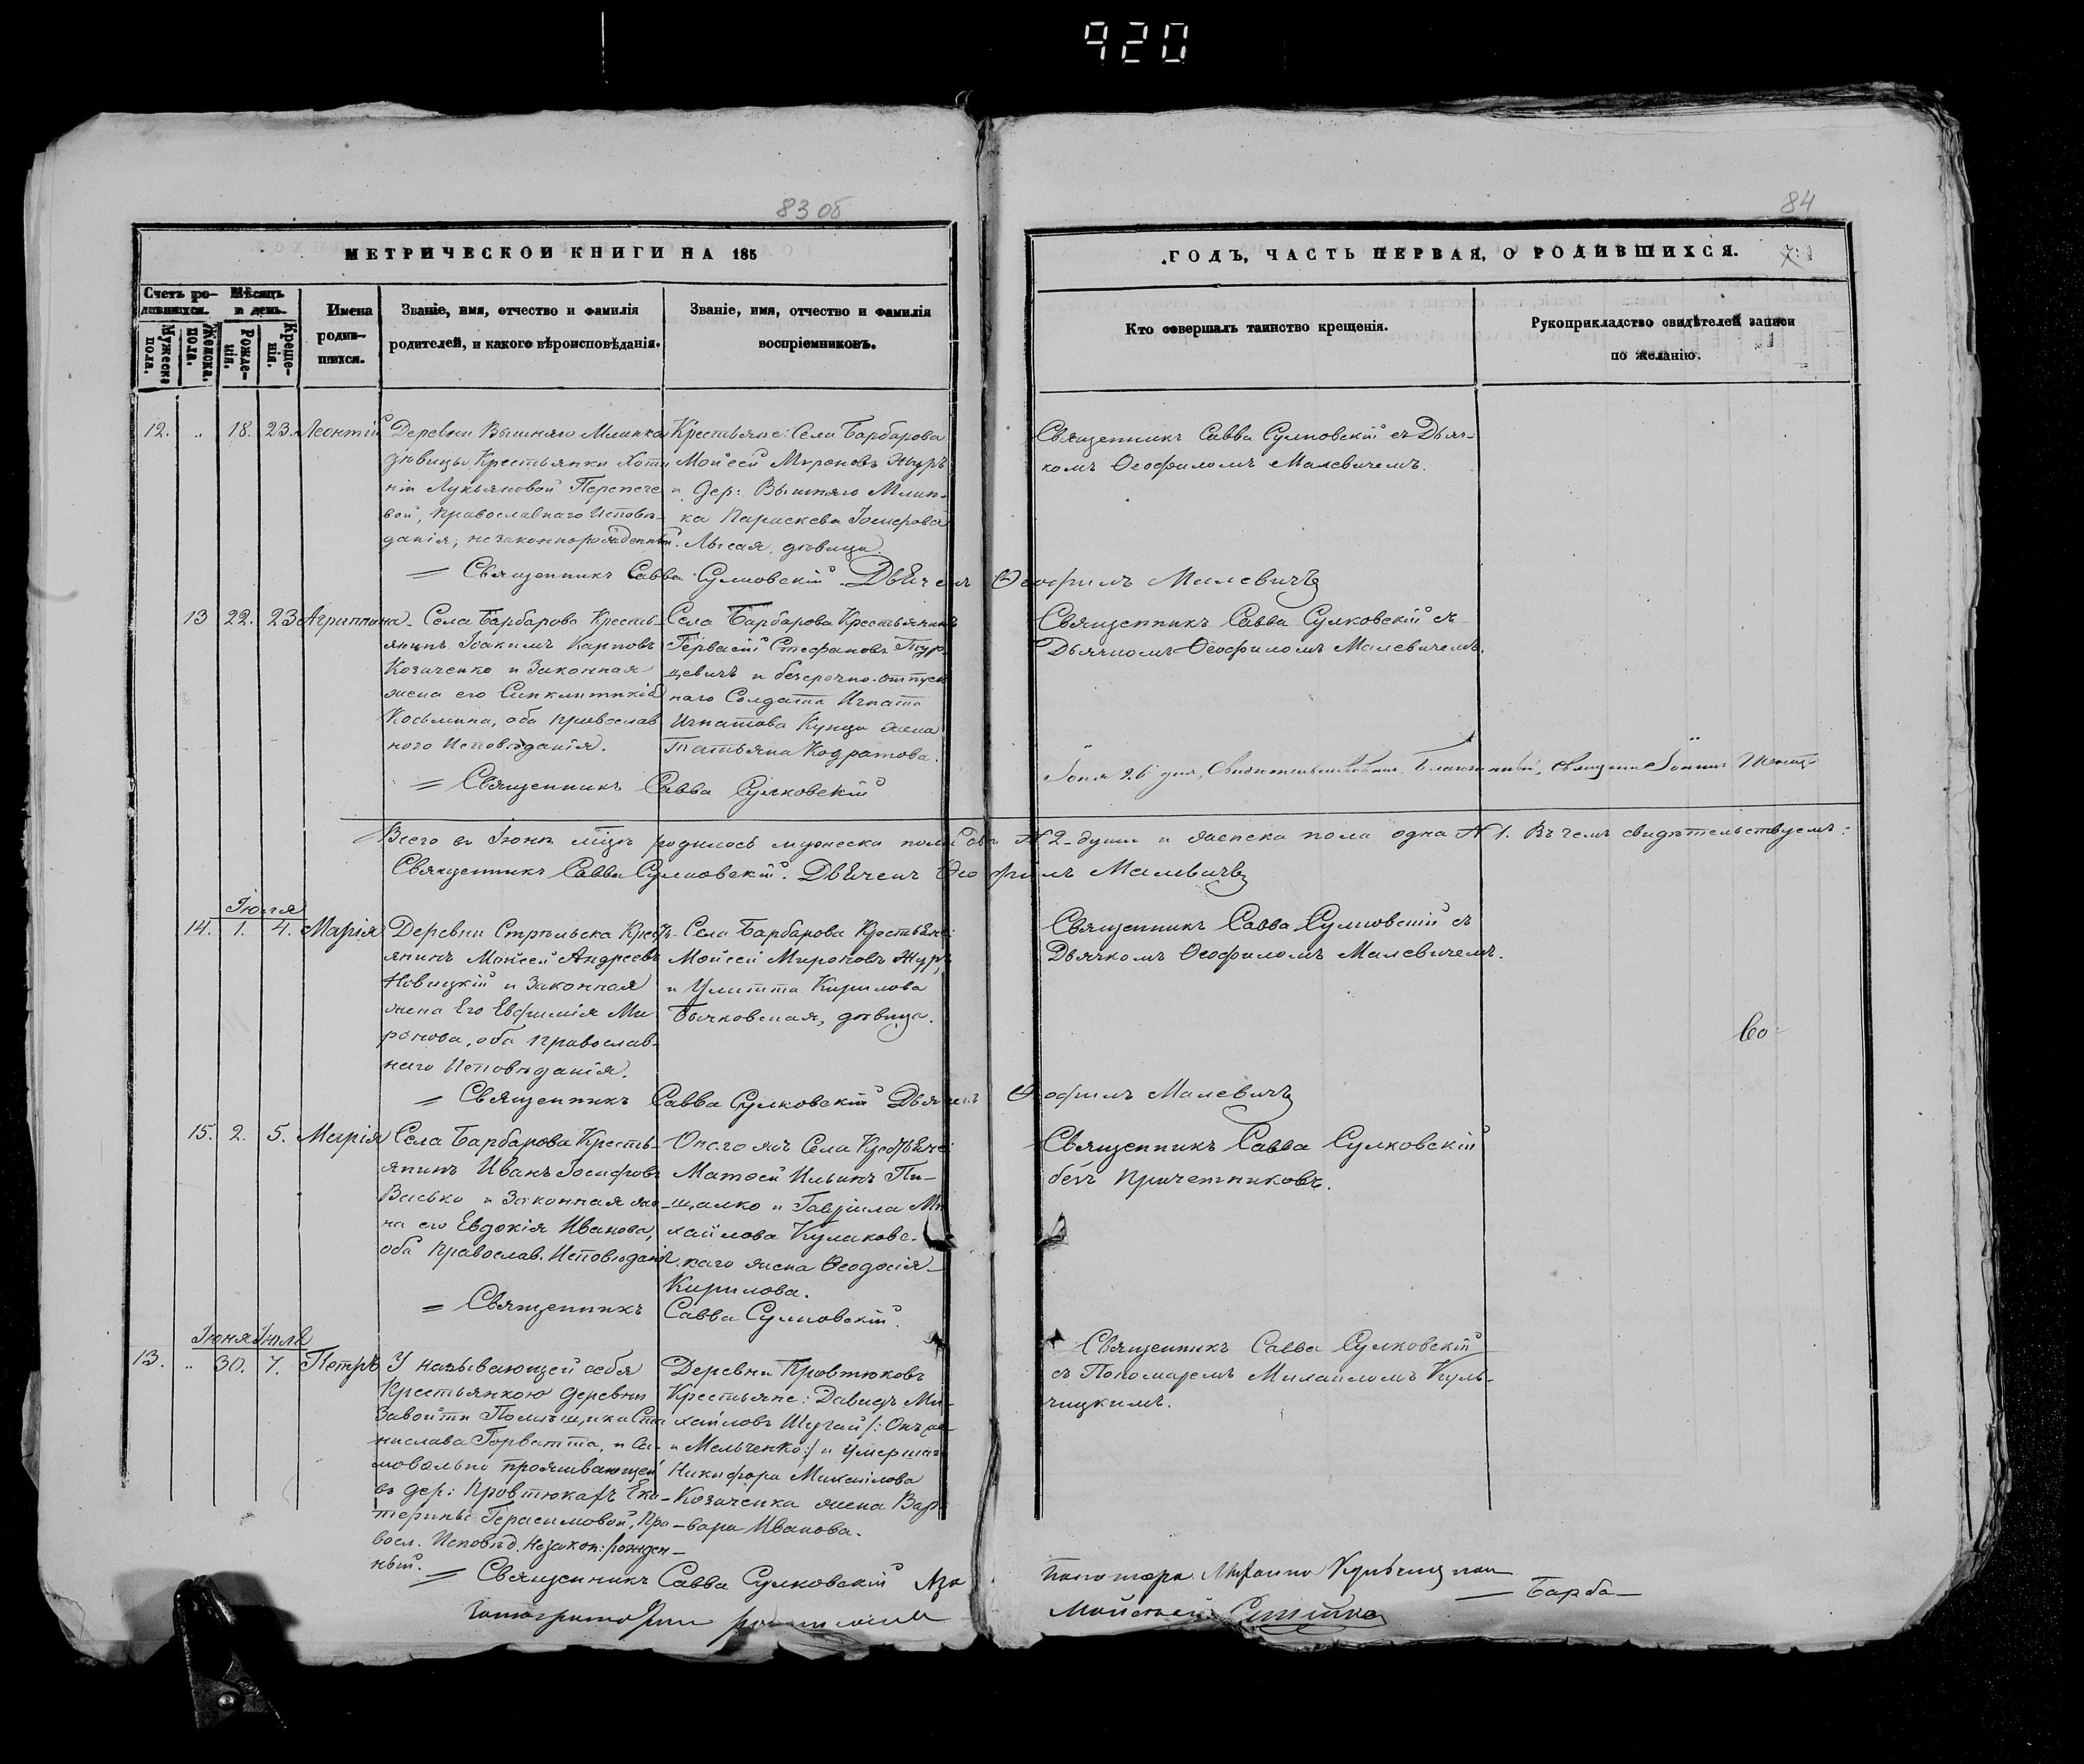 920
83 об
84
МЕТРИЧЕСКОЙ КНИГИ НА 185
ГОДЪ, ЧАСТЬ ПЕРВАЯ, О РОДИВШИХСЯ.
Счетъ ро-
дившихся.
Мужеска
пола.
Женска.
пола.
Мѣсяцъ
и день.
Рожде-
нія.
Креще-
нія.
Имена
родив-
шихся.
Званіе, имя, отчество и фамилія
родителей, и какого вѣроисповѣданія.
Званіе, имя, отчество и фамилія
воспріемниковъ.
Кто совершалъ таинство крещенія.
Рукоприкладство свидѣтелей записи
по желанію.
12. „ 18. 23. Леонтій
Деревни Вышняго Млинка
дѣвицы, Крестьянки Хоти
ніи Лукьяновой Перепече
вой, православнаго Исповѣ-
данія, незаконнорожденный.
Крестьяне: Села Барбарова
Мойсей Мироновъ Журъ
и дер: Вышняго Млин-
ка Параскева Іосифова
Лысая, дѣвица.
Священникъ Савва Сулковскій съ Дьяч-
комъ Ѳеофиломъ Малевичемъ.
= Священникъ Савва Сулковскій. Дьячекъ Ѳеофилъ Малевичъ
13 22. 23 Агриппина
Села Барбарова Кресть-
янинъ Іоакимъ Карповъ
Козаченко и Законная
жена его Синклитикія
Косьмина, оба православ
ного Исповѣданія.
Села Барбарова Крестьянинъ
Гервасій Стефановъ
цевичъ и безсрочно-отпуск
наго Солдата Игната
Игнатова Кунца жена
Татьяна Кодратова.
Священникъ Савва Сулковскій съ
Дьячкомъ Ѳеофиломъ Малевичемъ.
= Священникъ Савва Сулковскій
26 дня, священникъ
Всего въ Іюнѣ мѣцѣ родилось мужеска пола двѣ № 2 души и женска пола одна № 1. Въ чемъ свидѣтельствуемъ:
Священникъ Савва Сулковскій. Дьячекъ Ѳеофилъ Малевичъ
Іюля
14. 1. 4. Марія
Деревни Стрѣльска Кресть-
янинъ Мойсей Андреевъ
Новицкій и Законная
жена Его Евфимія Ми
ронова, оба православ-
наго Исповѣданія.
Села Барбарова Крестьяне:
Мойсей Мироновъ Журъ,
и Улитта Кирилова
Бычковская, дѣвица.
Священникъ Савва Сулковскій съ
Дьячкомъ Ѳеофиломъ Малевичемъ.
Во
= Священникъ Савва Сулковскій Дьячекъ Ѳеофилъ Малевичъ
15. 2. 5. Марія
Села Барбарова Кресть-
янинъ Иванъ Іосифовъ
Васько и Законная же-
на его Евдокія Иванова,
оба Православ. Исповѣданія.
Онаго жъ Села Крестьяне:
Матѳей Ильинъ Пи-
щалко и Гавріила Ми
хайлова Кулаковс-
каго жена Ѳеодосія
Кирилова.
Священникъ Савва Сулковскій
безъ Причетниковъ.
= Священникъ Савва Сулковскій.
Іюня Іюля
13. „ 30. 7. Петръ
У называющей себя
Крестьянкою деревни
Завойти Помѣщика Ста
нислава Горватта, и са-
мовольно проживающей
въ дер: Провтюкахъ Ека-
терины Герасимовой, Пра-
восл. Исповѣд. Незакон: рожден-
ный.
Деревни Провтюковъ
Крестьяне: Давидъ Ми-
хайловъ Шугай /: Онъ же
и Мельченко:/ и умершаго
Никифора Михайлова
Козаченка жена Вар-
вара Иванова.
Священникъ Савва Сулковскій
съ Пономаремъ Михаиломъ Куль-
чицкимъ.
= Священникъ Савва Сулковскій
Барба